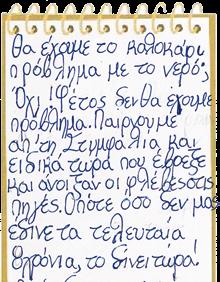 θα έχουμε το καλοκαίρι
πρόβλημα με το νερό;
Όχι! Φέτος δεν θα έχουμε
πρόβλημα. Παίρνουμε
απ' τη Στυμφαλία και
ειδικά τώρα που έβρεξε
και άνοιξαν οι φλέβες στις
πηγές. Οπότε όσο δεν μας
έδινε τα τελευταία
8 χρόνια, το δίνει τώρα!